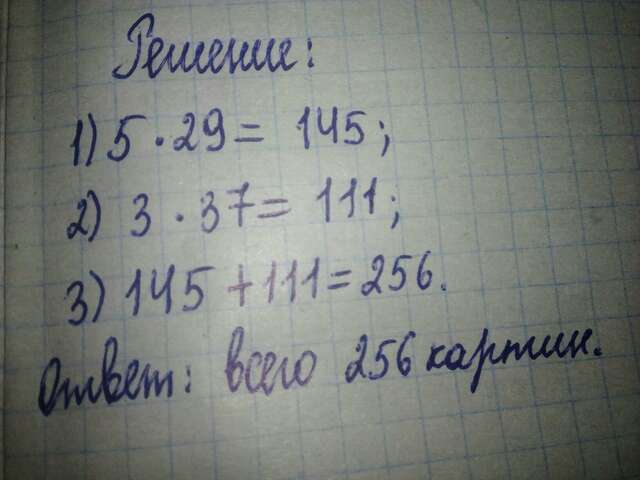 Решение:
1) 5 · 29 = 145;
2) 3 · 37 = 111;
3) 145 + 111 = 256.
Ответ: всего 256 картин.